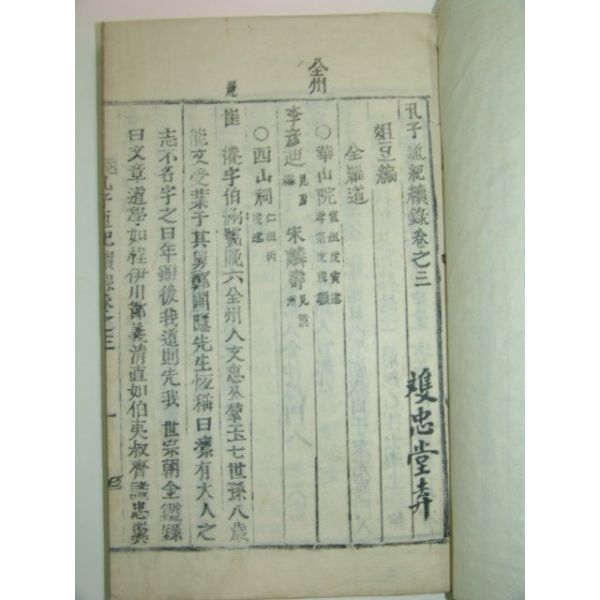 孔子通紀續錄卷之三
雙忠堂弆
俎豆編
全羅道
全州
○華山院 宣祖戊寅建 孝宗戊戌額
李彦迪 見 宋麟壽 見清州
○西山祠 仁祖丙 建
崔 字伯 六全州人文惠 七世孫八歲
能文受業于其舅鄭圃隱先生恒稱曰 有大人之
志不名字之曰年雖後我道則先我 世宗朝全 錄
曰文章道學如程伊川 義清直如伯夷叔齊 忠
孔子通紀續錄卷之三 一